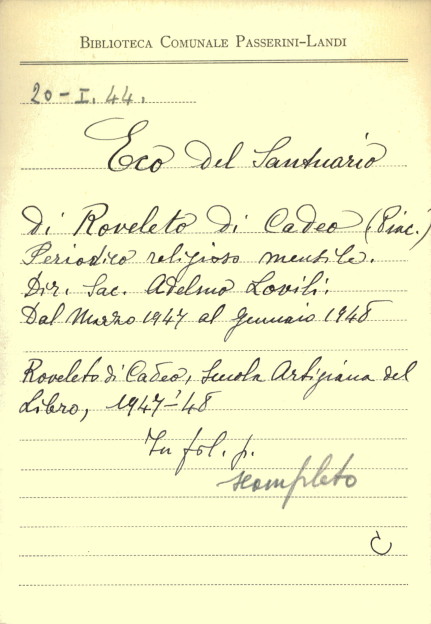 BIBLIOTECA COMUNALE PASSERINI-LANDI
20-I. 44.
Eco del Santuario
di Roveleto di Cadeo (Piac.)
Periodico religioso mensile.
Dir. Sac. Adelmo Lovili.
Dal Marzo 1947 al Gennaio 1948
Roveleto di Cadeo, Scuola Artigiana del
Libro, 1947-'48
In fol. p.
scompleto
C